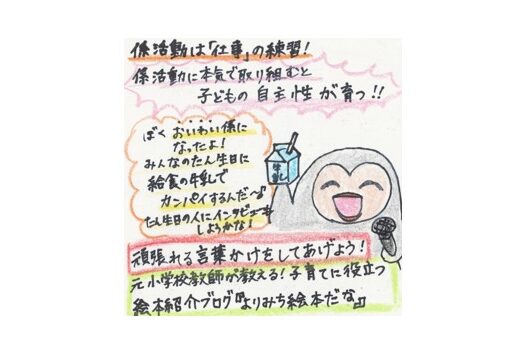 係活動は「仕事」の練習!
係活動に本気で取り組むと
子どもの自主性が育つ!!
ぼくおいわい係に
なったよ!
みんなのたん生日に
給食の牛乳で
カンパイするんだ〜♪
たん生日の人にインタビューも
しようかな!
牛乳
頑張れる言葉かけをしてあげよう!
元小学校教師が教える!子育てに役立つ
絵本紹介ブログ『よりみち絵本だな』